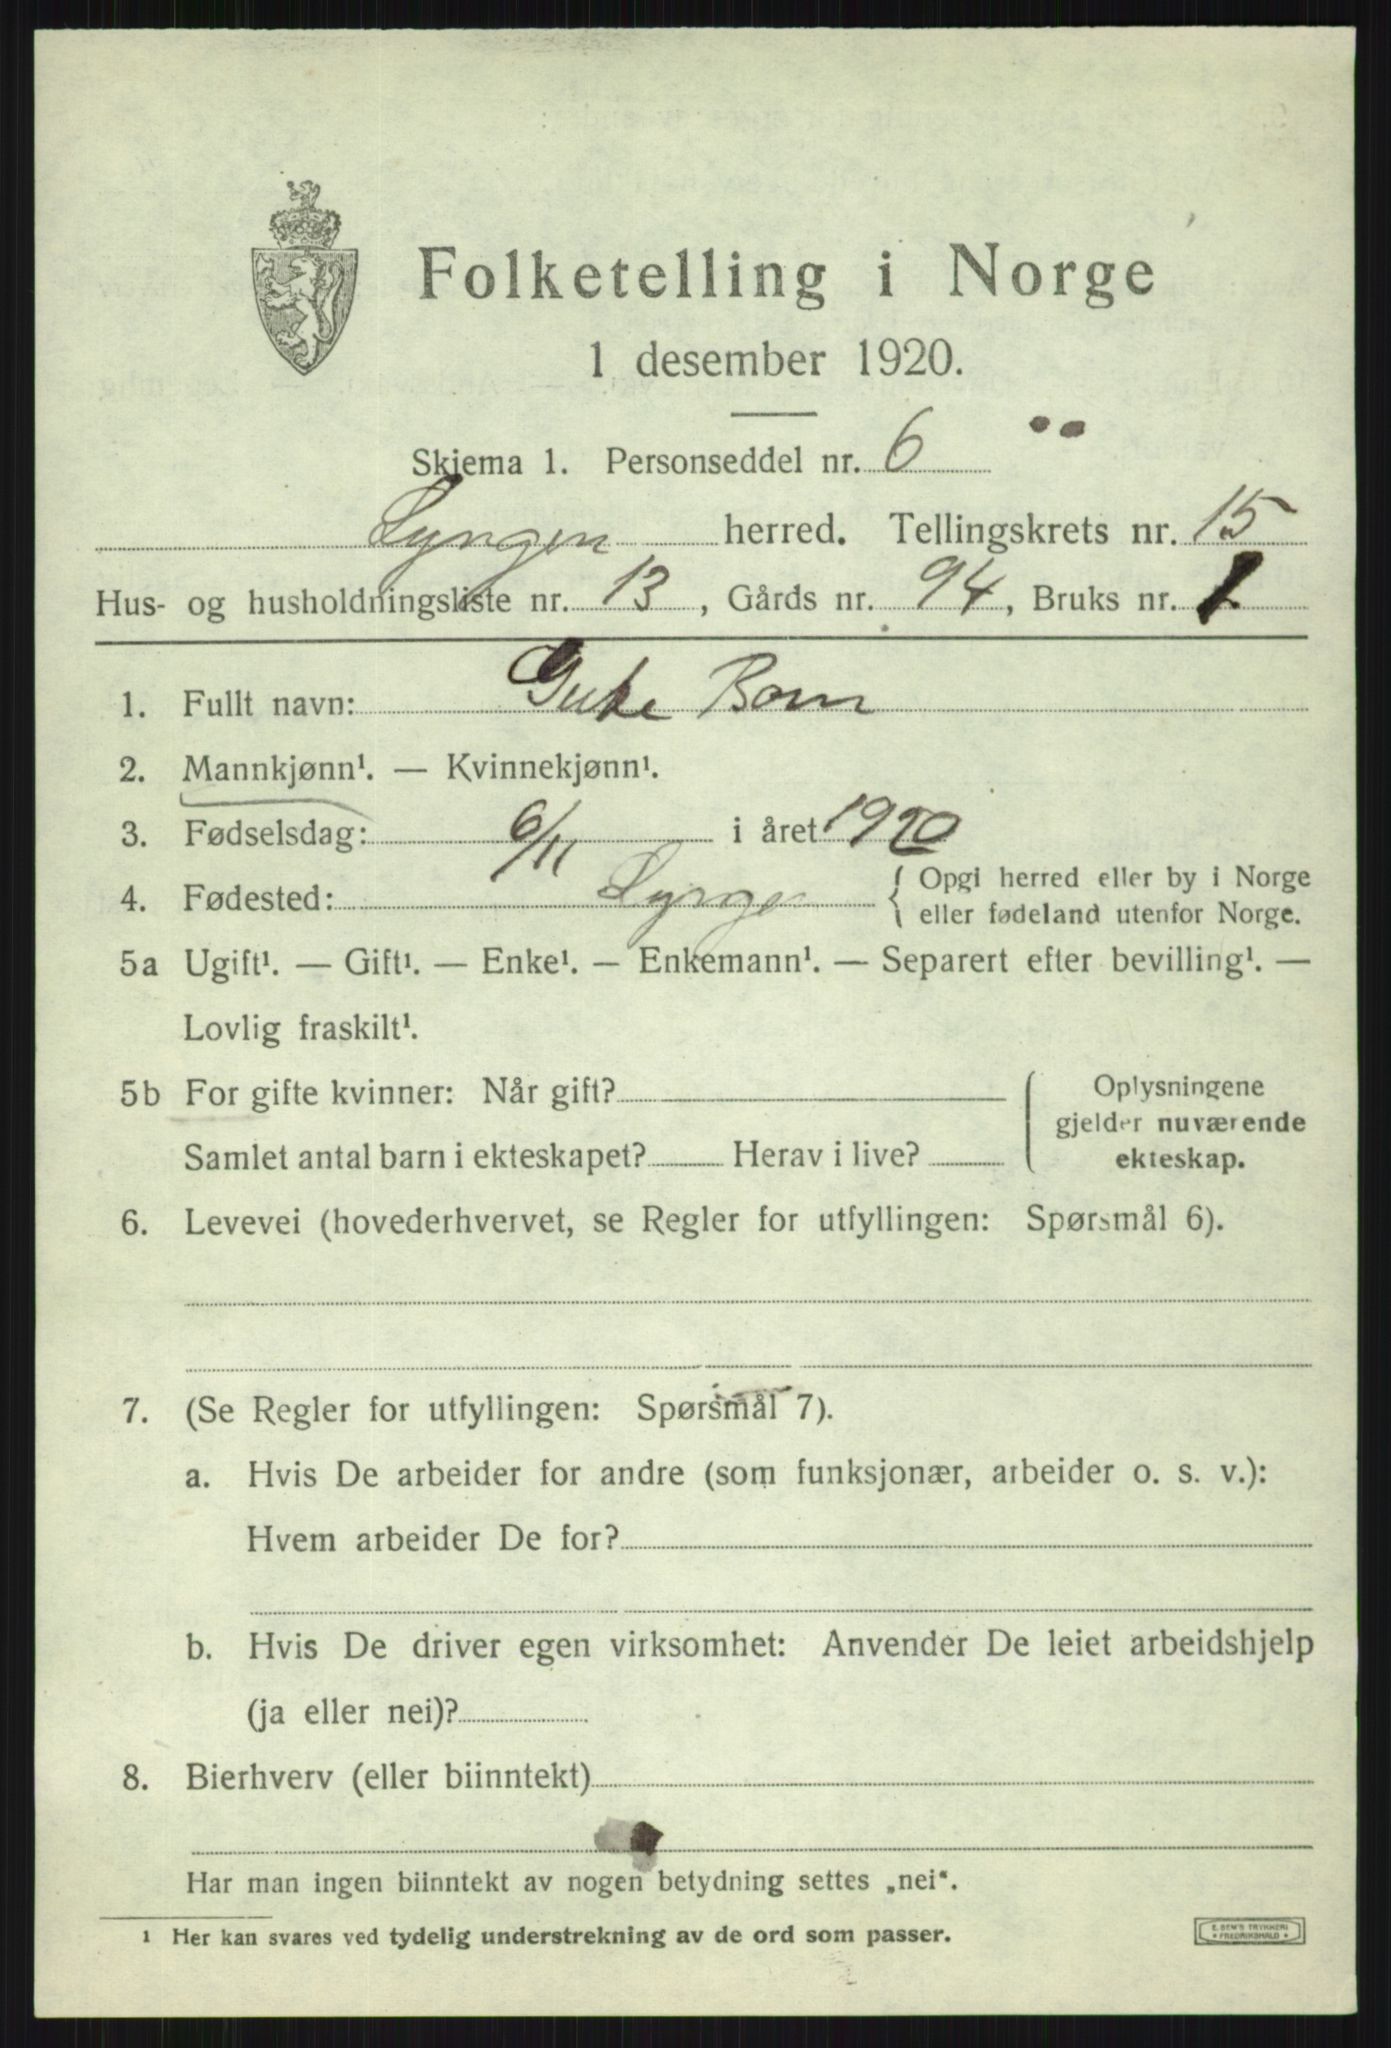 Folketelling i Norge
1 desember 1920.
Skjema 1. Personseddel nr. 6
Lyngen herred. Tellingskrets nr. 15
Hus- og husholdningsliste nr. 13, Gårds nr. 94, Bruks nr.
1. Fullt navn: Gute Barn
2. Mannkjønn¹. — Kvinnekjønn¹.
3. Fødselsdag: 6/11 i året 1920
4. Fødested: Lyngen { Opgi herred eller by i Norge
eller fødeland utenfor Norge.
5a Ugift¹. — Gift¹. — Enke¹. — Enkemann¹. — Separert efter bevilling¹. —
Lovlig fraskilt¹.
5b For gifte kvinner: Når gift?
Samlet antal barn i ekteskapet? Herav i live?
Oplysningene
gjelder nuværende
ekteskap.
6. Levevei (hovederhvervet, se Regler for utfyllingen: Spørsmål 6).
7. (Se Regler for utfyllingen: Spørsmål 7).
a. Hvis De arbeider for andre (som funksjonær, arbeider o. s. v.):
Hvem arbeider De for?
b. Hvis De driver egen virksomhet: Anvender De leiet arbeidshjelp
(ja eller nei)?
8. Bierhverv (eller biinntekt)
Har man ingen biinntekt av nogen betydning settes „nei“.
¹ Her kan svares ved tydelig understrekning av de ord som passer.
E. SEM'S TRYKKERI
FREDRIKSHALD